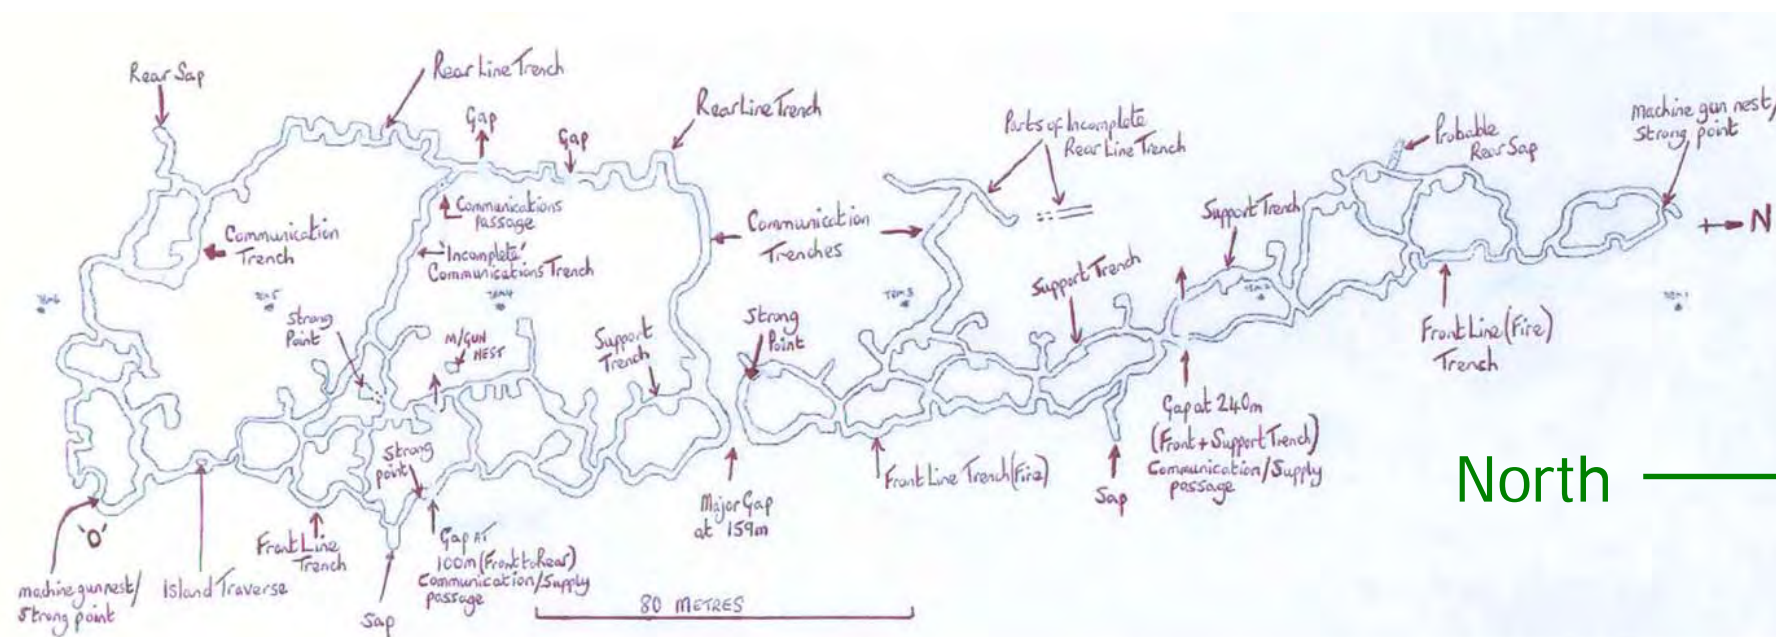 Rear Sap
Rear Line Trench
Gap
Gap
Rear Line Trench
Parts of Incomplete
Rear Line Trench
Probable
Rear Sap
machine gun nest/
Strong point
Communication
Trench
Communications
Passage
'Incomplete'
Communications Trench
Communication
Trenches
Support Trench
Support Trench
N
TBM6
TBM5
TBM4
TBM3
TBM2
TBM1
Strong
Point
M/GUN
NEST
Support
Trench
Strong
Point
Front Line (Fire)
Trench
Strong
point
Gap at 240m
(Front + Support Trench)
Communication/Supply
passage
Front Line Trench (Fire)
Sap
Major Gap
at 159m
North
'O'
machine gun nest/
Strong point
Island Traverse
Front Line
Trench
Sap
Gap AT
100m (Front to Rear)
Communication/Supply
passage
80 METRES